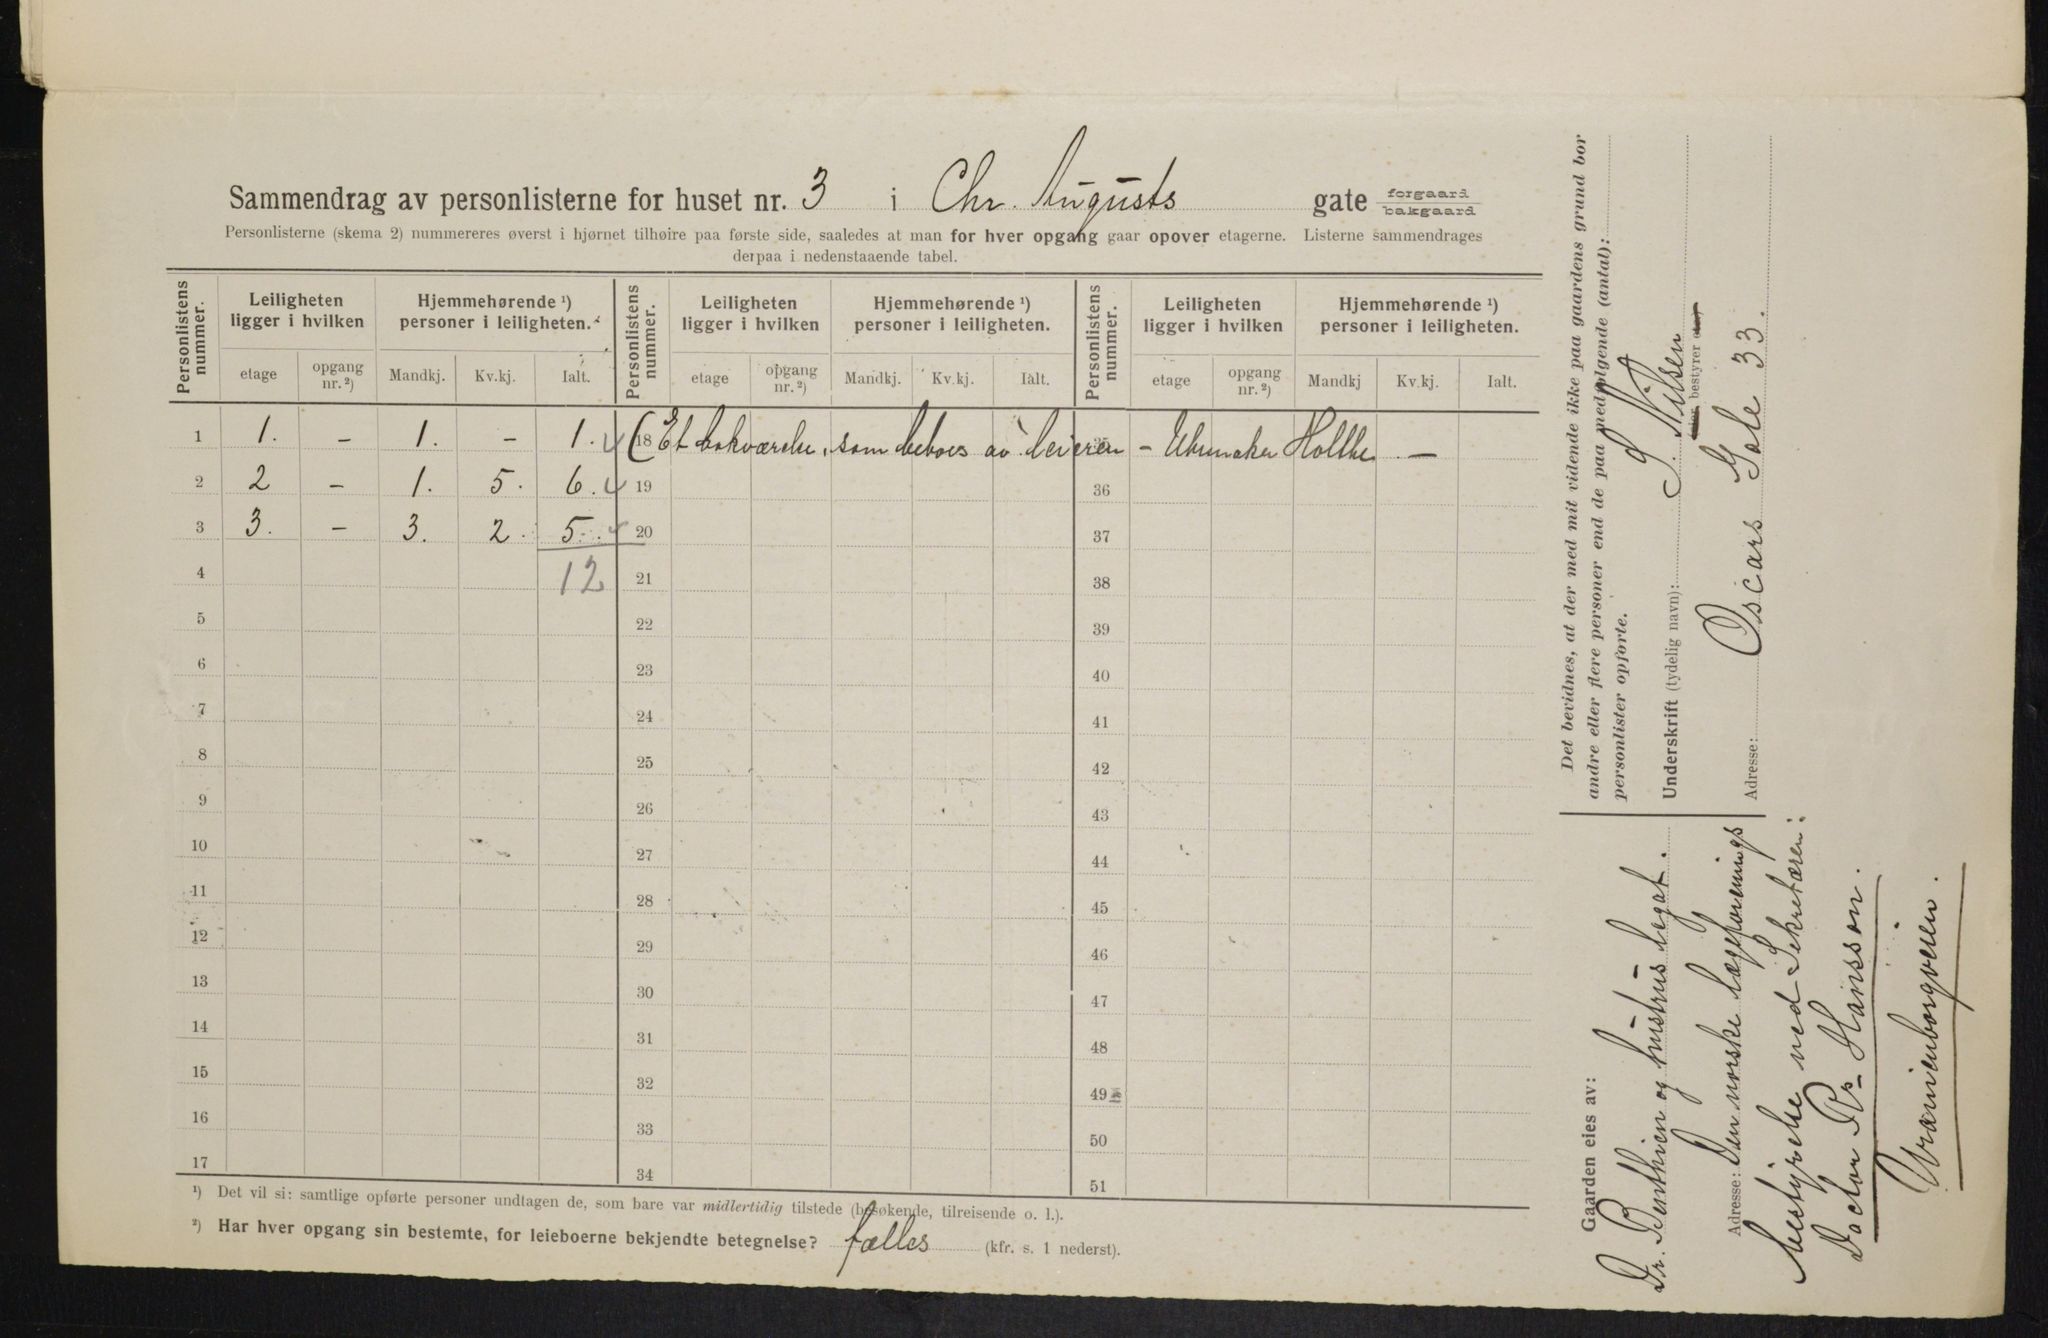 Sammendrag av personlisterne for huset nr. 3 i Chr. Augusts gate forgaard bakgaard
Personlisterne (skema 2) nummereres øverst i hjørnet tilhøire paa første side, saaledes at man for hver opgang gaar opover etagerne. Listerne sammendrages
derpaa i nedenstaaende tabel.
Personlistens nummer. Leiligheten ligger i hvilken Hjemmehørende ¹) personer i leiligheten. Personlistens nummer. Leiligheten ligger i hvilken Hjemmehørende ¹) personer i leiligheten. Personlistens nummer. Leiligheten ligger i hvilken Hjemmehørende ¹) personer i leiligheten.
etage opgang nr. ²) Mandkj. Kv.kj. Ialt. etage opgang nr. ²) Mandkj. Kv.kj. Ialt. etage opgang nr. ²) Mandkj Kv.kj. Ialt.
1 1. - 1. - 1. 18 (Et bokværelse, som beboes av leieren - Uhrmaker Holthe - 35
2 2 - 1. 5. 6. 19 36
3 3. - 3. 2. 5. 20 37
4 12 21 38
5 22 39
6 23 40
7 24 41
8 25 42
9 26 43
10 27 44
11 28 45
12 29 46
13 30 47
14 31 48
15 32 49
16 33 50
17 34 51
¹) Det vil si: samtlige opførte personer undtagen de, som bare var midlertidig tilstede (besøkende, tilreisende o. l.).
²) Har hver opgang sin bestemte, for leieboerne bekjendte betegnelse? fælles (kfr. s. 1 nederst).
Det bevidnes, at der med mit vidende ikke paa gaardens grund bor
andre eller flere personer end de paa medfølgende (antal):
personlister opførte.
Underskrift (tydelig navn): S. Nilsen
bestyrer
Adresse: Oscars Gate 33.
Gaarden eies av:
Dr. Benthien og hustrus legat.
Adresse: Den norske lægeforenings
bestyrelse ved Sekretæren:
Doctor Rs Hansson.
Uranienborgveien.